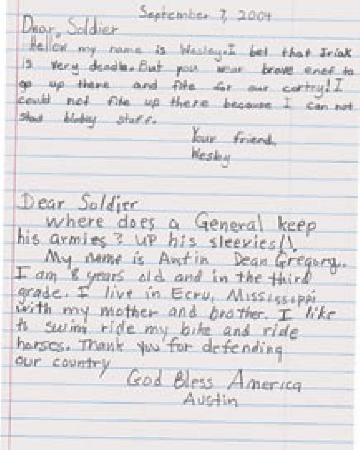 September 7, 2004
Dear, Soldier
Hellow my name is Wesley. I bet that Iriak
is very deadle. But you wear brave enef to
go up there and fite for our contry! I
could not fite up there because I can not
stand bloby stuff.
Your friend,
Wesley
Dear Soldier
where does a General keep
his armies? UP his sleevies!!
My name is Austin Dean Gregory.
I am 8 years old and in the third
grade. I live in Ecru, Mississippi
with my mother and brother. I like
to swim ride my bike and ride
horses. Thank you for defending
our country
God Bless America
Austin